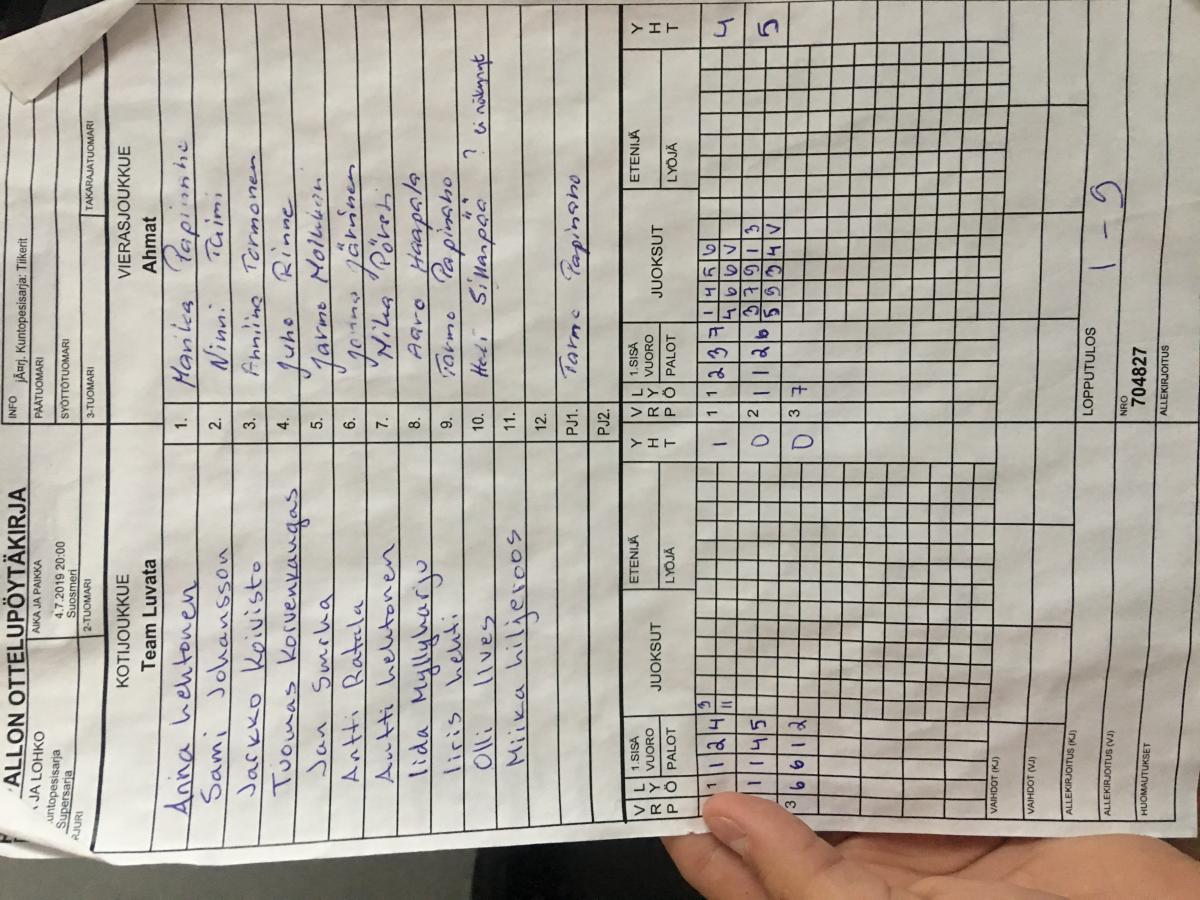 ALLON OTTELUPÖYTÄKIRJA
JA LOHKO
untopesisarja
Supersarja
AIKA JA PAIKKA
4.7.2019 20:00
Suosmeri
2-TUOMARI
INFO järj. Kuntopesisarja: Tiikerit
PÄÄTUOMARI
SYÖTTÖTUOMARI
3-TUOMARI
TAKARAJATUOMARI
KOTIJOUKKUE
Team Luvata
VIERASJOUKKUE
Ahmat
Anna Lehtonen 1. Marika
Sami Johansson 2. Ninni Taimi
Jarkko Koivisto 3. Anniina Tormonen
Tuomas Koivenkangas 4. Juho Rinne
Jan Smirka 5. Jarmo
Antti Ratala 6. Joanna Järvinen
Antti Lehtonen 7. Mika Pörsti
Iida Myllyharju 8. Aaro Haapala
Iiris Lehti 9. Tarmo Papinaho
Olli Ilves 10. Heli Sillanpää ? ei näkynyt
Miika Liljeroos 11.
12.
PJ1. Tarmo Papinaho
PJ2.
VRP LYÖ 1.SISÄ VUORO PALOT JUOKSUT ETENIJÄ LYÖJÄ YHT VRP LYÖ 1.SISÄ VUORO PALOT JUOKSUT ETENIJÄ LYÖJÄ YHT
1 1 1 2 4 3 1 1 1 2 3 7 1 4 5 6 4
11 4 6 6 V
1 1 4 5 0 2 1 1 2 6 3 7 9 1 3 5
5 9 3 4 V
3 6 6 1 2 0 3 7
VAIHDOT (KJ)
VAIHDOT (VJ)
ALLEKIRJOITUS (KJ)
LOPPUTULOS 1 - 9
ALLEKIRJOITUS (VJ)
NRO
704827
HUOMAUTUKSET
ALLEKIRJOITUS